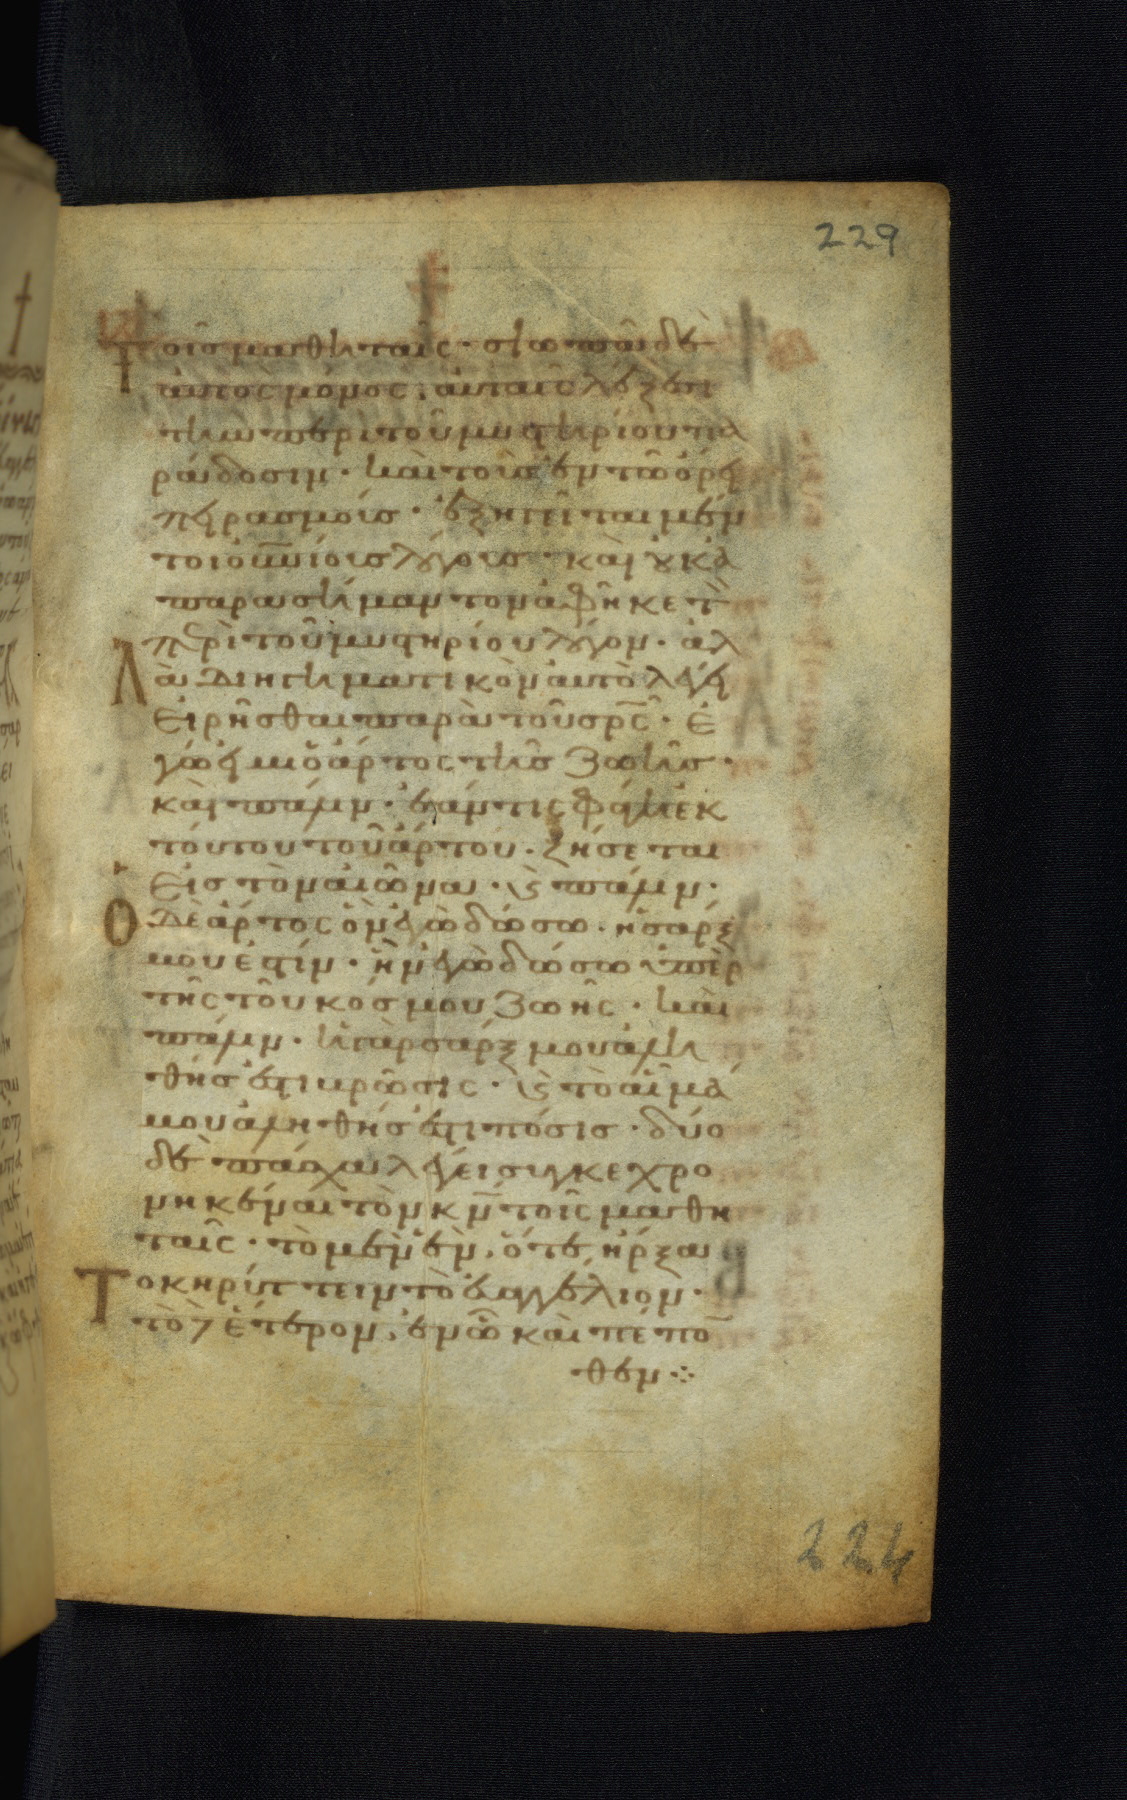 229
τοῖς μαθηταῖς · σιωπᾶι δὲ
αὐτὸς μόνος · αὐταῖς λέξεσι
τὴν περι τοῦ μυστηρίου πα
ράδοσιν · καὶ τοῖς ἐν τῶ ὄρει
πειρασμοίς · ἐζητεῖται μὲν
τοι ὁ υἱὸς λόγοις · καὶ οὐκ ἀ
παρασήμαντον ἀφῆκε τὸ
περὶ τοῦ μυστηρίου λόγον · ἀλ
λὰ διηγηματικὸν αὐτὸ λέγει
εἰρῆσθαι παρὰ τοῦ σρς · ἐ
γώ εἰμι ὁ ἄρτος τῆς ζωῆς ·
καὶ πάλιν · ἐάν τις φάγη ἐκ
τούτου τοῦ ἄρτου · ζήσεται
εἰς τὸν αἰῶνα · ϗ πάλιν ·
ὁ δὲ ἄρτος ὃν ἐγὼ δώσω · ἡ σάρξ
μου ἐστίν · ἣν ἐγὼ δώσω ὑπὲρ
τῆς τοῦ κόσμου ζωῆς · καὶ
πάλιν · ἡ γὰρ σάρξ μου ἀλη
θής ἐστι βρῶσις · ϗ τὸ αἷμά
μου ἀληθής ἐστι πόσις · δύο
δὲ πάσχα λέγει συγκεχρο
νηκέναι τὸν κν τοῖς μαθη
ταῖς · τὸ μὲν ἓν, ὅτε ἤρξα
το κηρύττειν τὸ εὐαγγέλιον ·
τὸ δ ἕτερον, ἐν ῶ καὶ πέπο
θεν ⁘
224